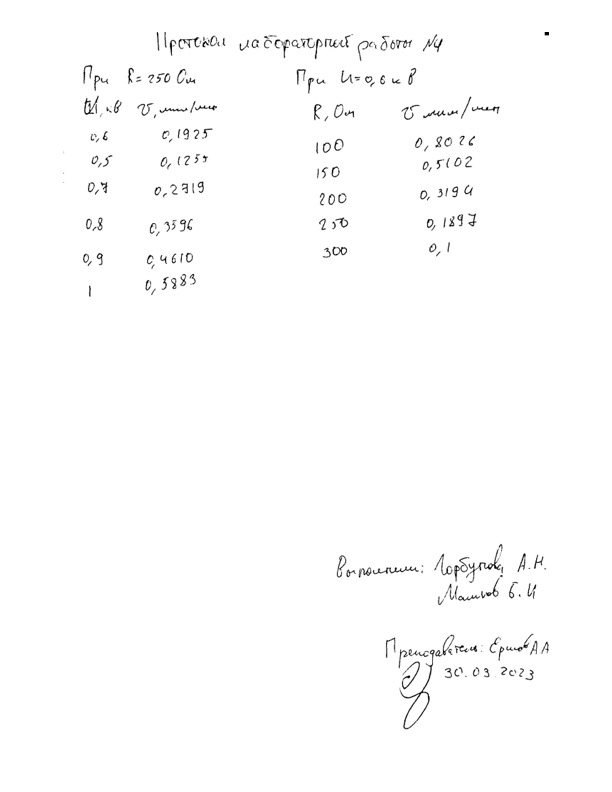 Протокол лабораторный работы №4
При R=250 Ом
U, кВ v, мм/мин
0,6 0,1925
0,5
0,7 0,2719
0,8 0,3596
0,9 0,4610
1 0,5883
При U=0,6 кВ
R, Ом v мм/мин
100 0,8026
150 0,5102
200 0,3194
250 0,1897
300 0,1
Выполнили: Горбунова А.Н.
Б.И
Преподаватель: Ершов А А
30.03.2023